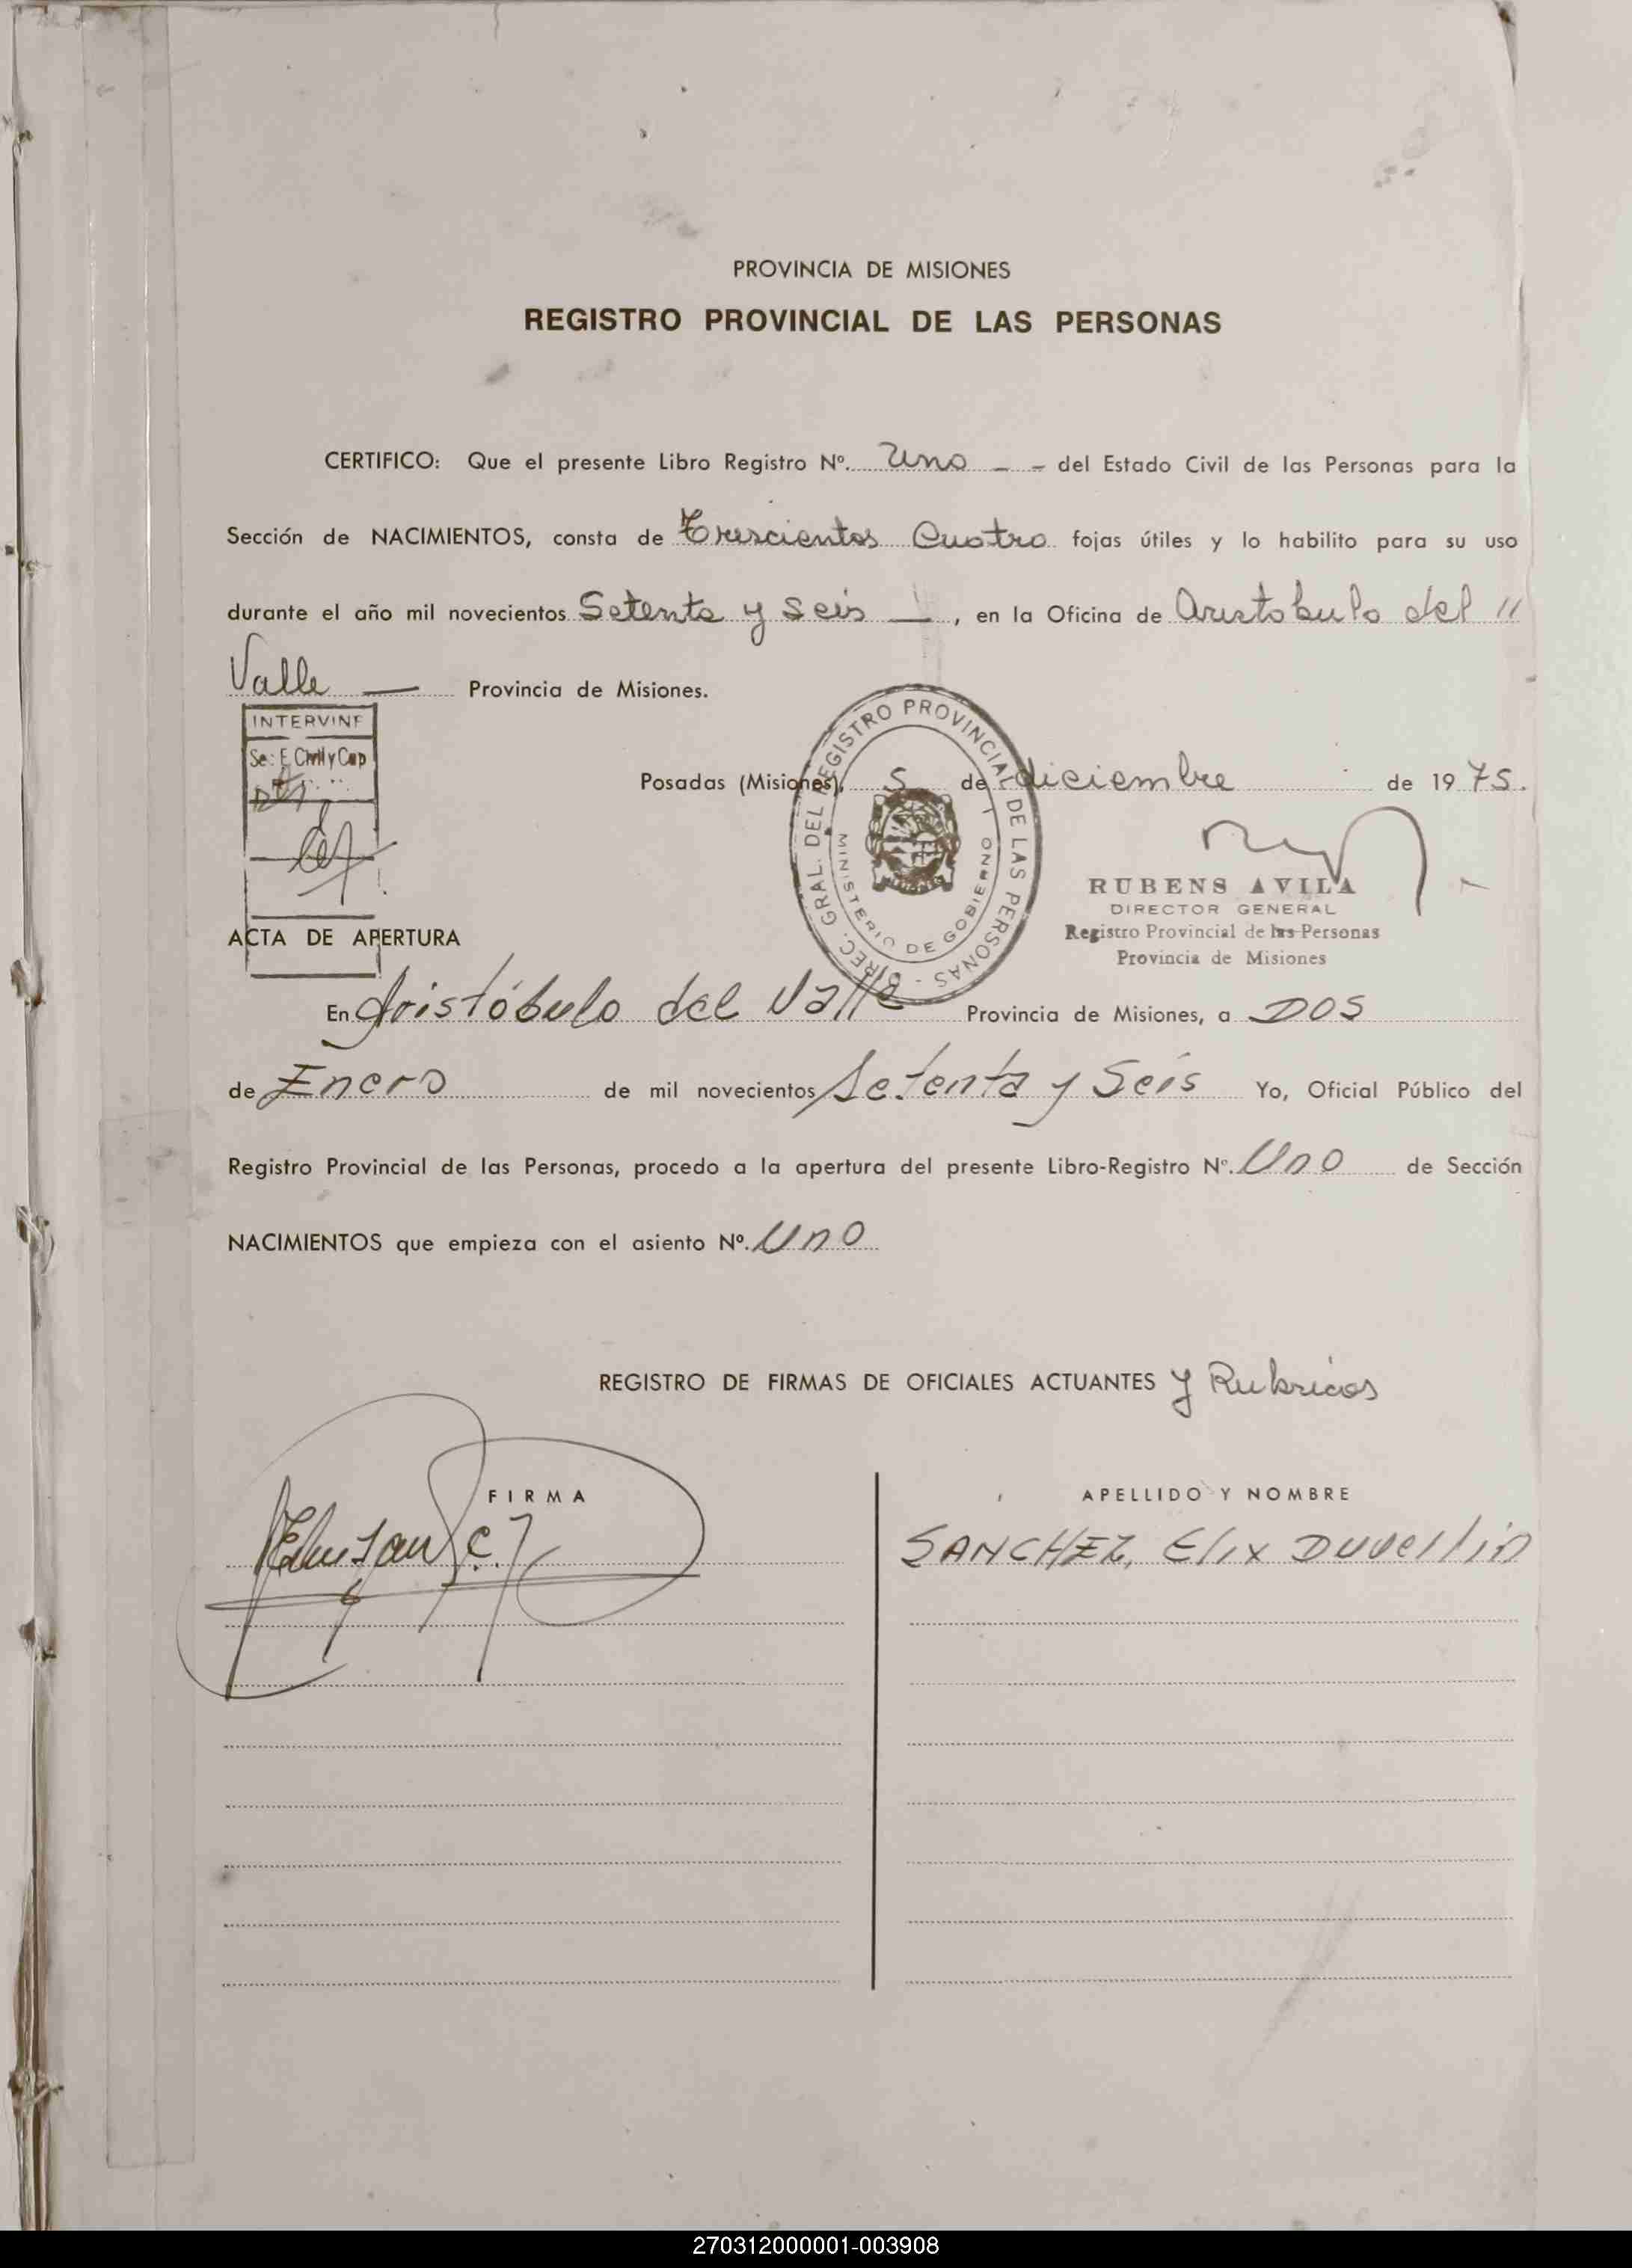 PROVINCIA DE MISIONES
REGISTRO PROVINCIAL DE LAS PERSONAS
CERTIFICO: Que el presente Libro Registro Nº. Uno - - del Estado Civil de las Personas para la
Sección de NACIMIENTOS, consta de Trescientos Cuatro fojas útiles y lo habilito para su uso
durante el año mil novecientos Setenta y Seis —, en la Oficina de Aristobulo del "
Valle — Provincia de Misiones.
INTERVINE
Se: E. Civil y Cap
Posadas (Misiones), 5 de diciembre de 1975.
DIREC. GRAL. DEL REGISTRO PROVINCIAL DE LAS PERSONAS -
MINISTERIO DE GOBIERNO
RUBENS AVILA
DIRECTOR GENERAL
Registro Provincial de las Personas
Provincia de Misiones
ACTA DE APERTURA
En Aristóbulo del Valle Provincia de Misiones, a DOS
de Enero de mil novecientos Setenta y Seis Yo, Oficial Público del
Registro Provincial de las Personas, procedo a la apertura del presente Libro-Registro Nº. Uno de Sección
NACIMIENTOS que empieza con el asiento Nº. Uno
REGISTRO DE FIRMAS DE OFICIALES ACTUANTES y Rubricas
FIRMA
APELLIDO Y NOMBRE
SANCHEZ, Elix Duvellin
270312000001-003908